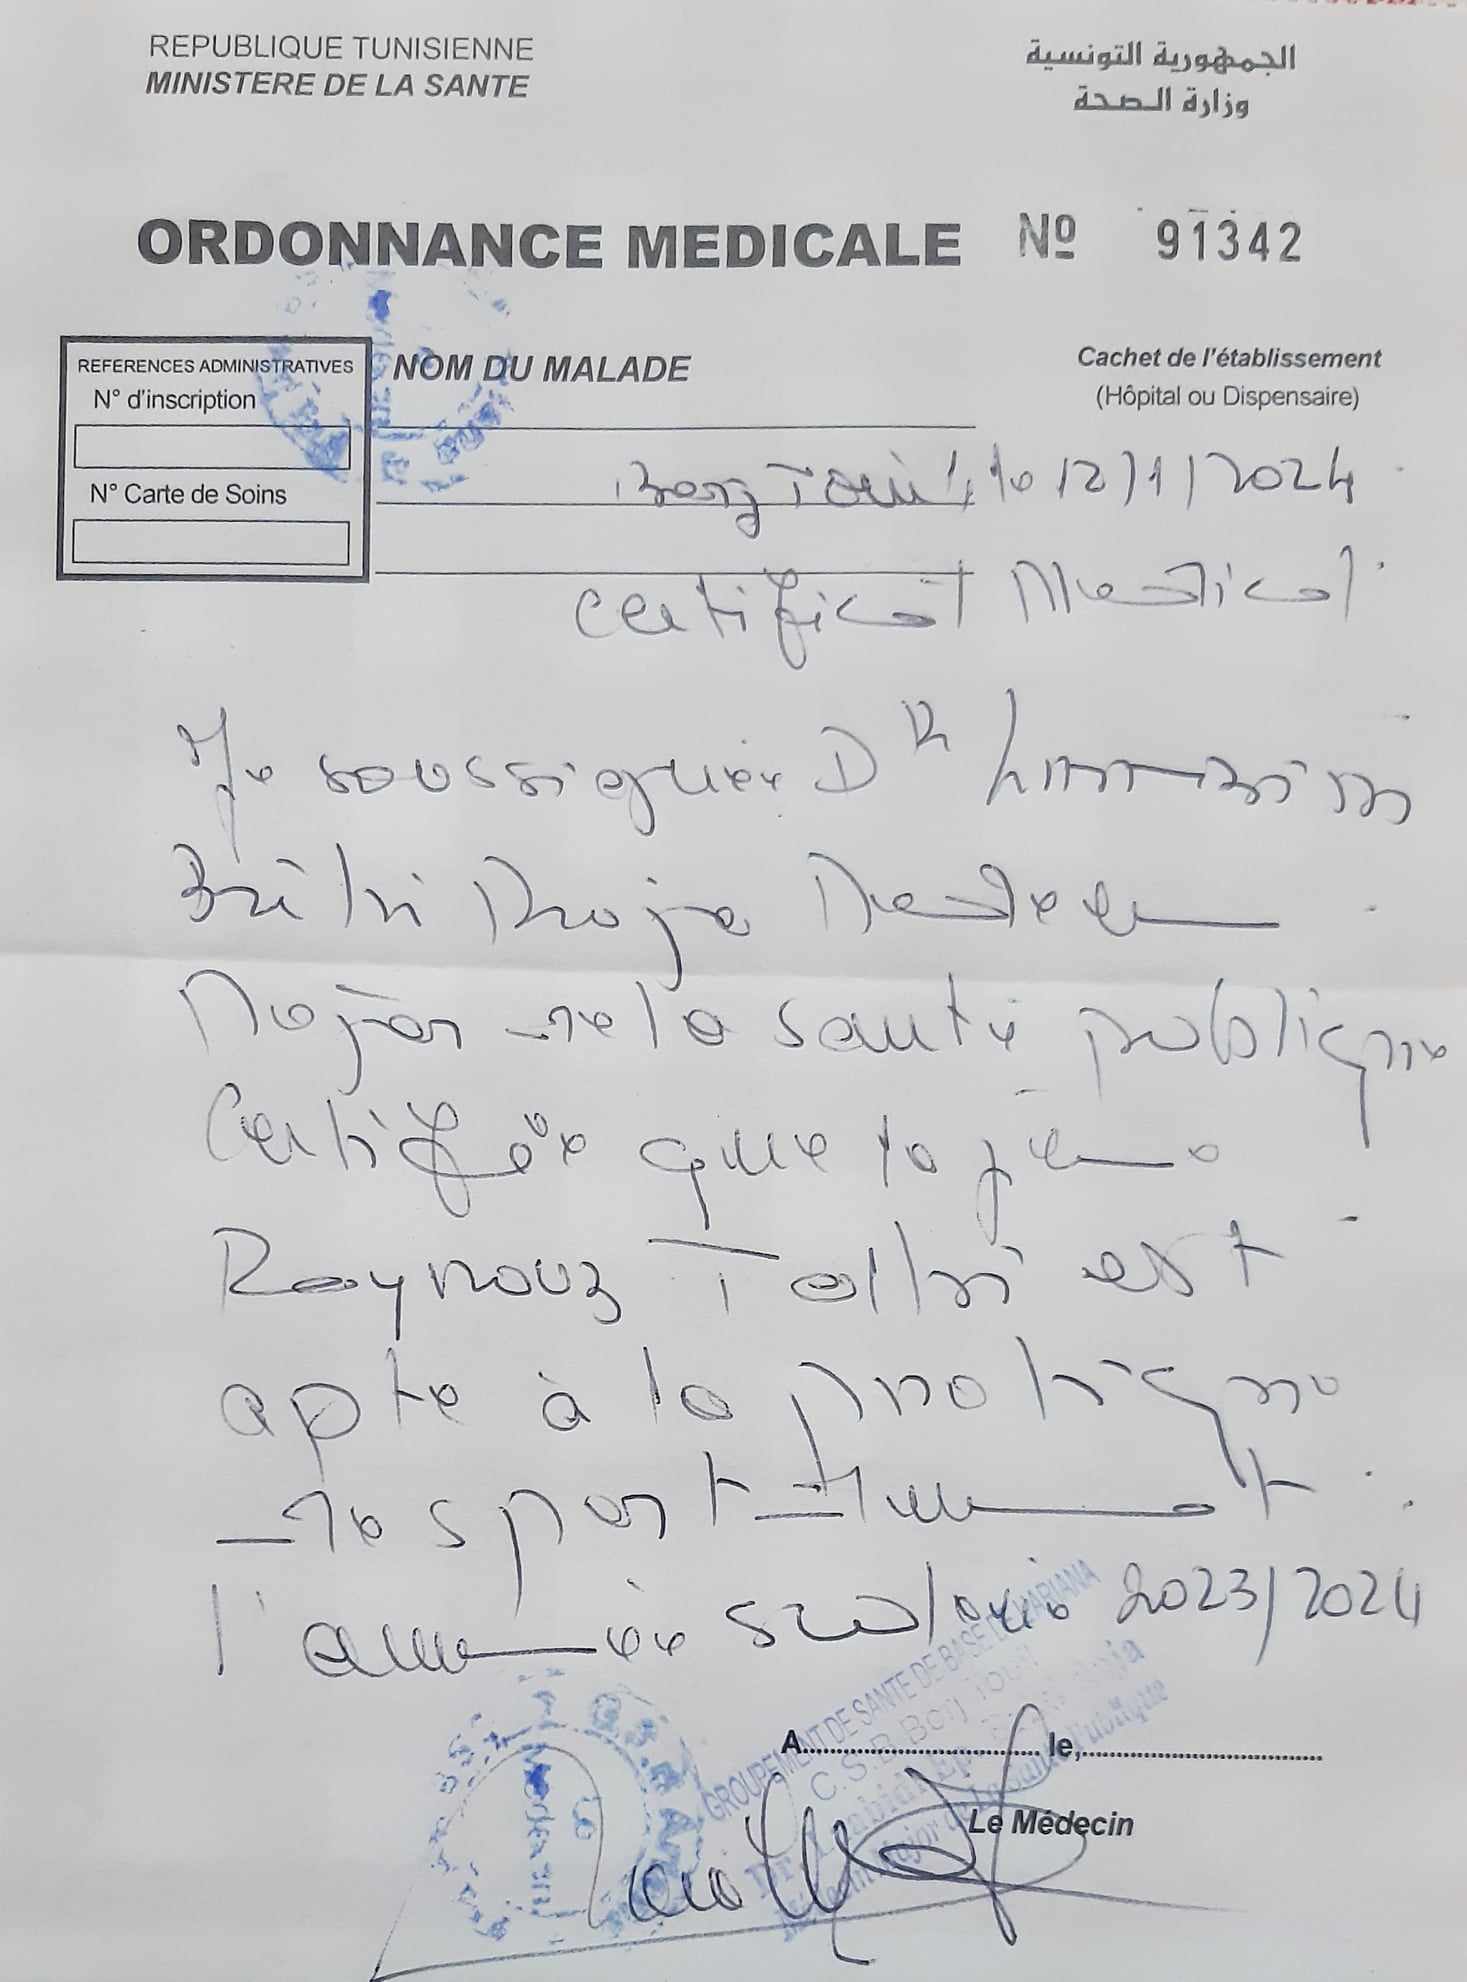 REPUBLIQUE TUNISIENNE
MINISTERE DE LA SANTE
الجمهورية التونسية
وزارة الصحة
ORDONNANCE MEDICALE Nº 91342
REFERENCES ADMINISTRATIVES
N° d'inscription
N° Carte de Soins
NOM DU MALADE
Cachet de l'établissement
(Hôpital ou Dispensaire)
Borj Touil, le 12/1/2024
Certificat Medical
Je soussignée Dr
Raja Medecin
Major de la santé publique
Certifiée que la
Raynouz est
apte à la pratique
de sport durant
l'année scolaire 2023/2024
GROUPEMENT DE SANTE DE BASE DE L'ARIANA
C.S.B. Borj Touil
Major de la Santé Publique
A.................... le,....................
Le Médecin